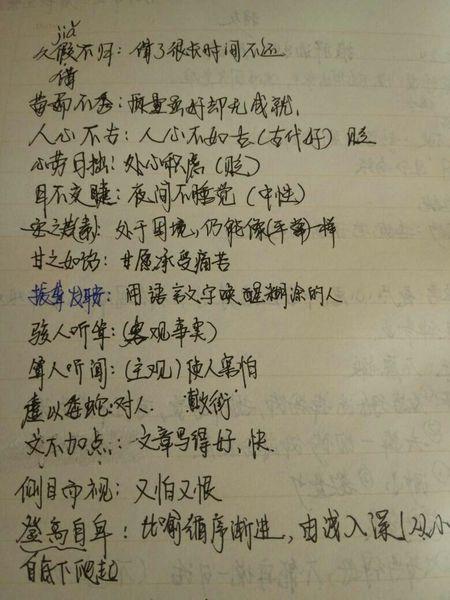 jiǎ
久假不归：借了很长时间不还
借
苗而不秀：质量虽好却无成就.
人心不古：人心不如古(古代好) 贬
心劳日拙：处心积虑(贬)
目不交睫：夜间不睡觉(中性)
安之若素：处于困境,仍能像(平常)一样
甘之如饴：甘愿承受痛苦
振聋发聩：用语言文字唤醒糊涂的人
骇人听闻：(客观事实)
耸人听闻：(主观)使人害怕
虚以委蛇：对人. 敷衍
文不加点：文章写得好,快.
侧目而视：又怕又恨
登高自卑：比喻循序渐进,由浅入深
自低下爬起